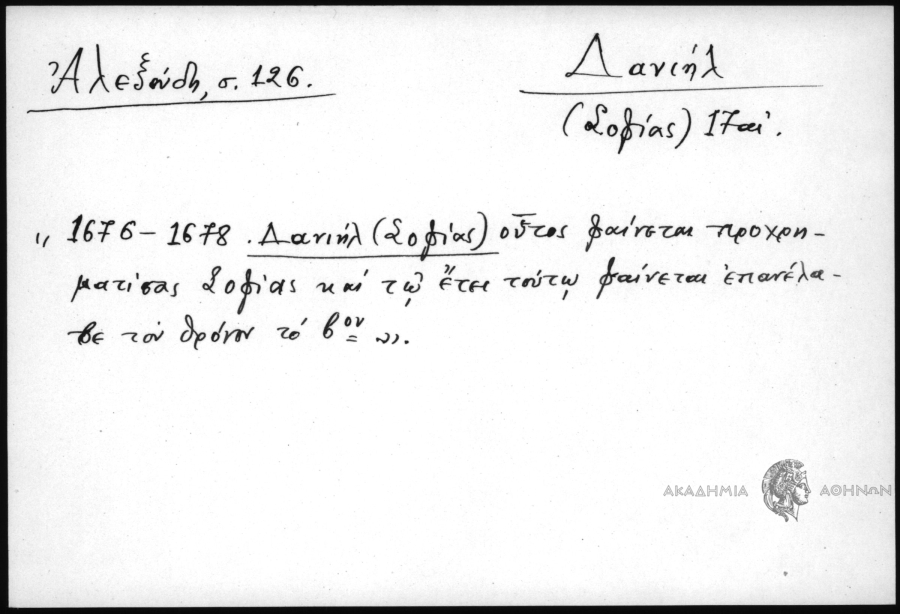 Ἀλεξούδη, σ. 126.
Δανιήλ
(Σοφίας) 17 αἰ.
„ 1676 – 1678. Δανιήλ (Σοφίας) οὗτος φαίνεται προχρη-
ματίσας Σοφίας καί τῷ ἔτει τούτῳ φαίνεται ἐπανέλα-
βε τόν θρόνον τό βον ».
ΑΚΑΔΗΜΙΑ ΑΘΗΝΩΝ